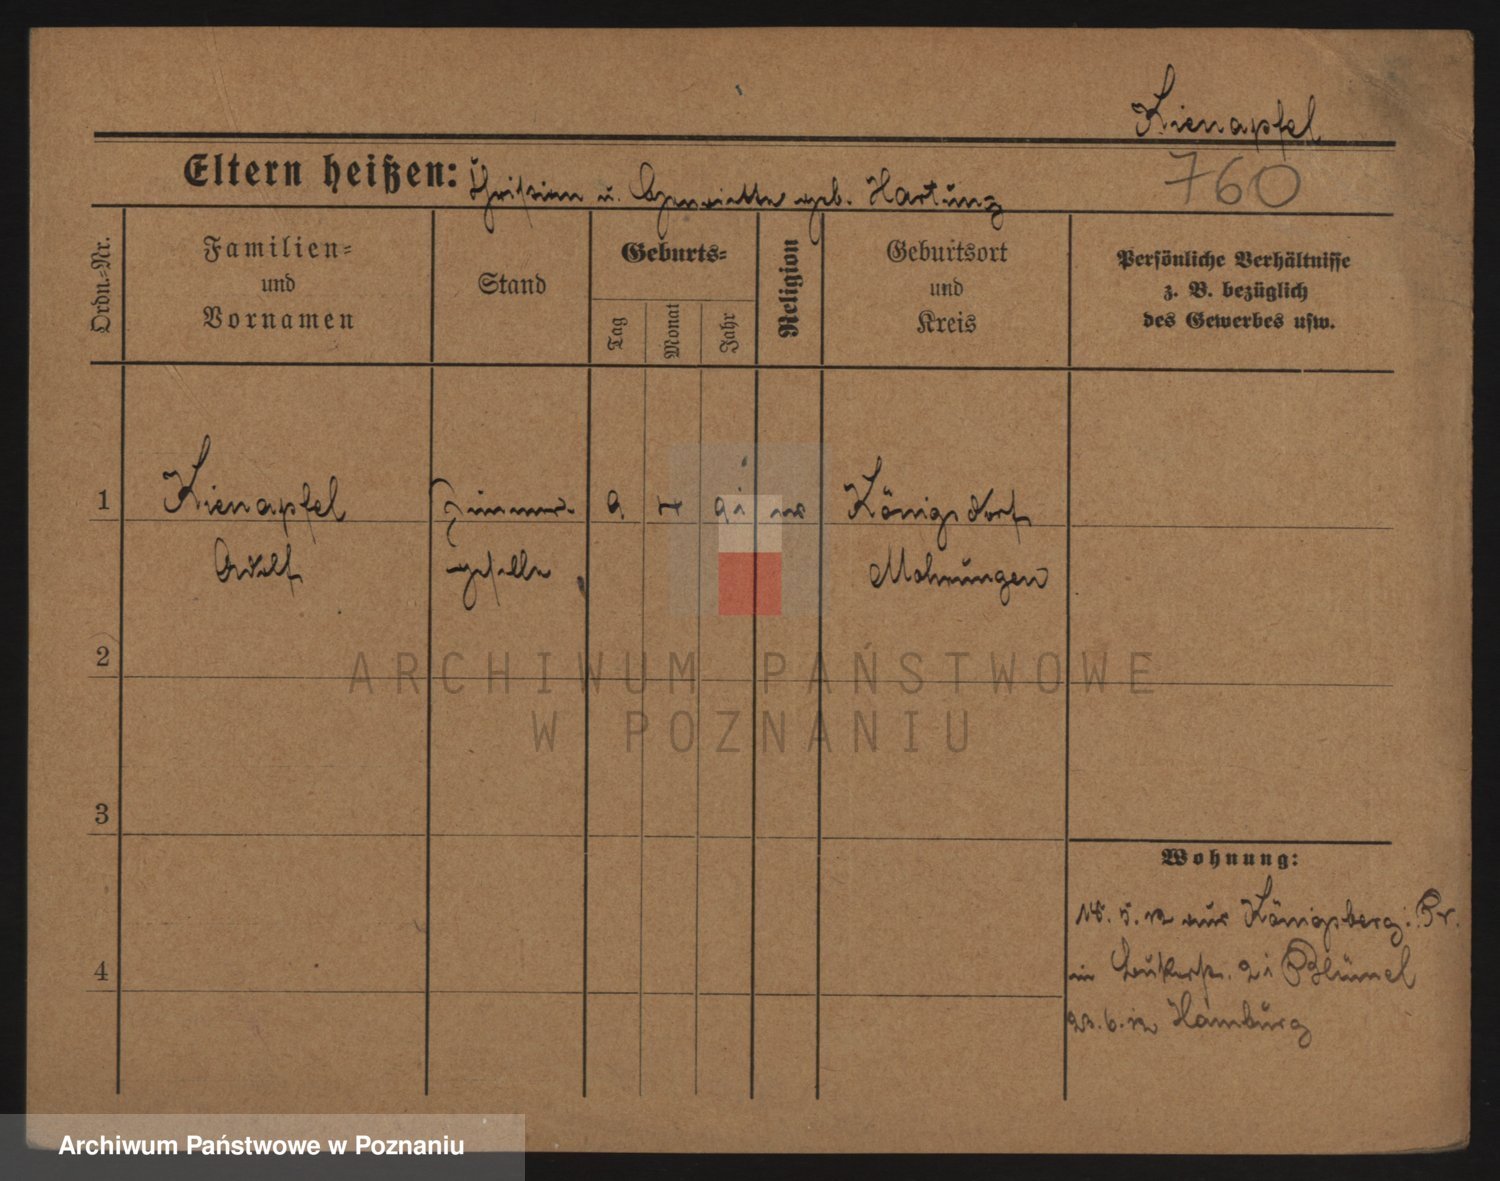 Kienapfel
760
Eltern heißen: Christian u. Henriette geb. Hartung
Ordn.=Nr.
Familien=
und
Vornamen
Stand
Geburts=
Tag
Monat
Jahr
Religion
Geburtsort
und
Kreis
Persönliche Verhältnisse
z. B. bezüglich
des Gewerbes usw.
1 Kienapfel Zimmer- 9 91 Königsdorf
Adolf geselle Mohrungen
2
ARCHIWUM PAŃSTWOWE
W POZNANIU
3
Wohnung:
5. 12 aus Königsberg i. Pr.
21 Blümel
4
23. 6. 12 Hamburg
Archiwum Państwowe w Poznaniu